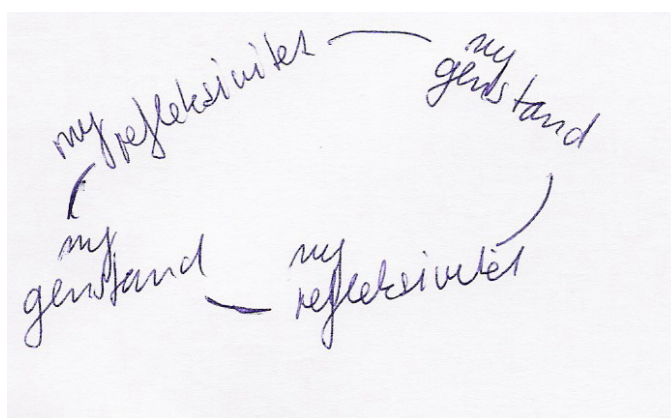 ny refleksivitet
ny
genstand
ny
refleksivitet
ny
genstand